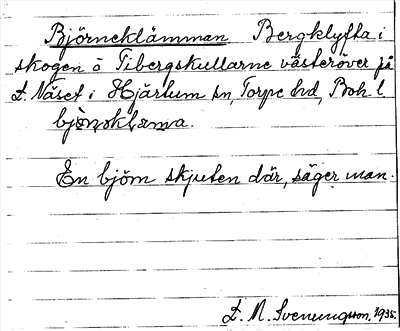 Björneklämman Bergklyfta i
skogen ö Tibergskullarne västeröver på
L. Näset i Hjärtum sn, Torpe hd, Boh. l
bjö̀ṇǝklæma.
En björn skjuten där, säger man.
L. M. Svenungsson. 1935.